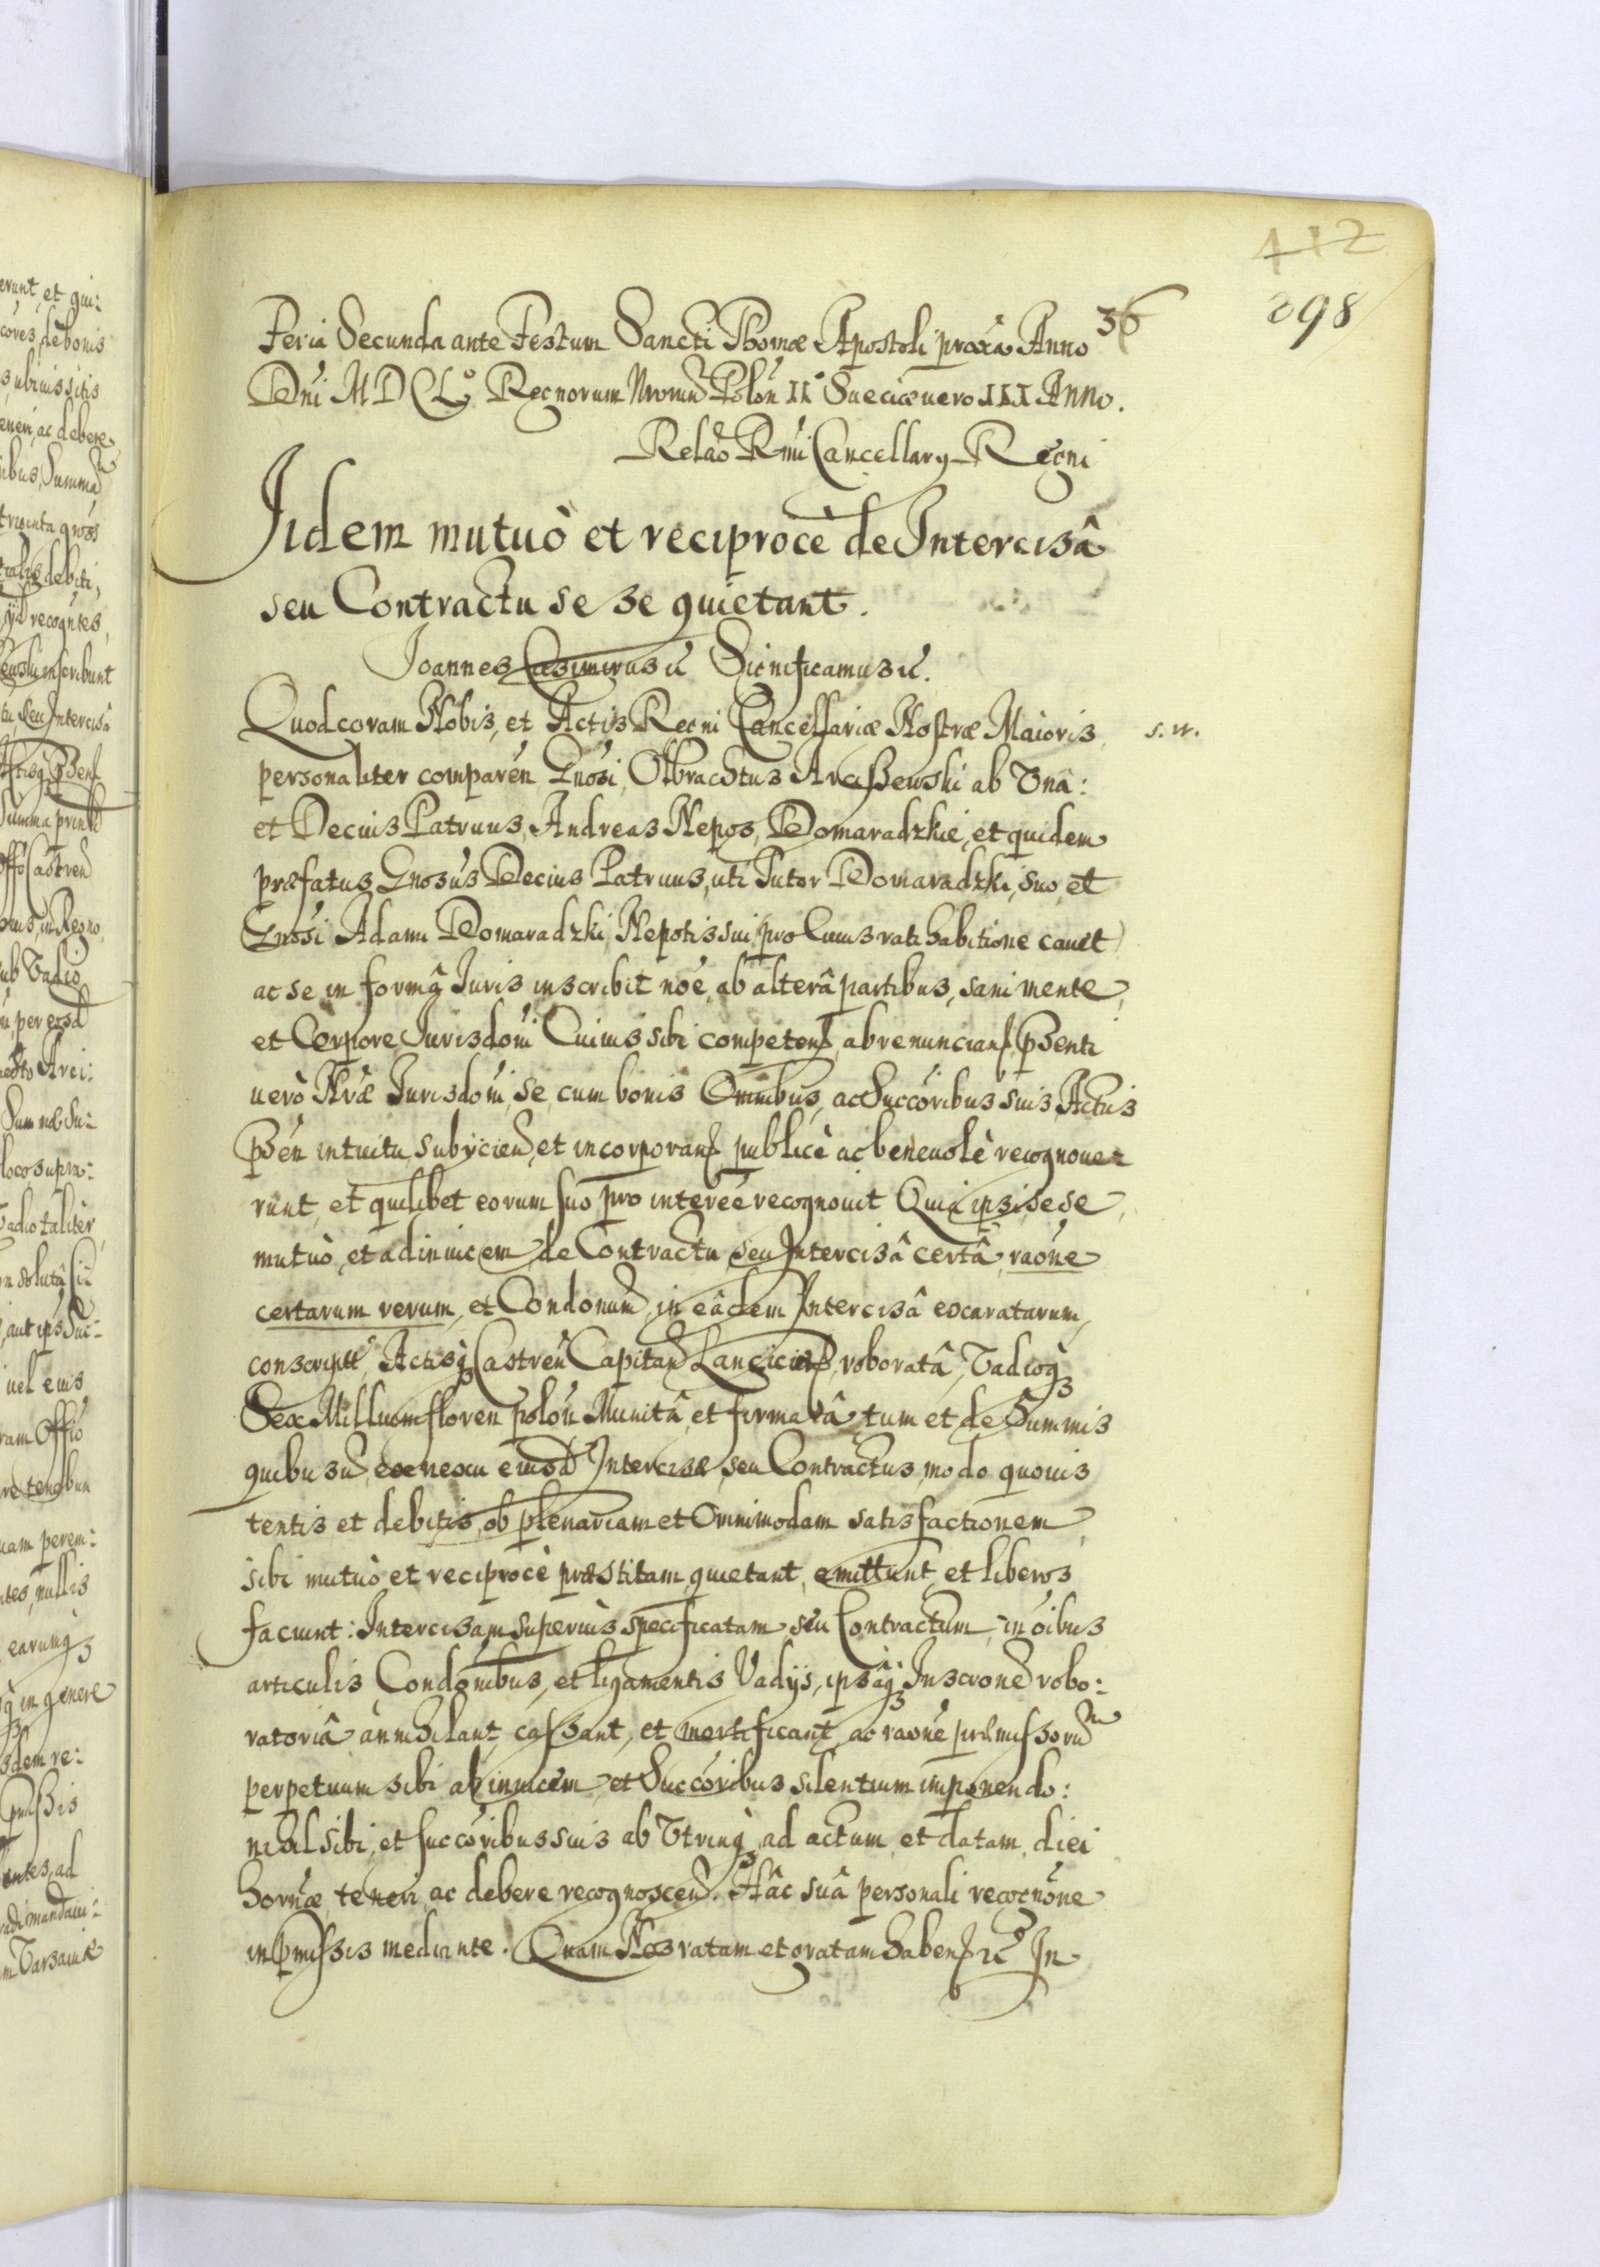 412
36
398
Feria Secunda ante Festum Sancti Thomæ Apostoli proxa Anno
Dni M D C Lo Regnorum Nrorum Polon II Sueciæ uero III Anno.
Relao Rmi Cancellary Regni
Iidem mutuò et reciprocè de Intercisâ
seu Contractu se se quietant.
Joannes Casimirus Significamus
Quod coram Nobis, et Actis Regni Cancellariæ Nostræ Maioris s. w.
personaliter comparen Gnosi, Olbrachtus Arcissewski ab Vnâ:
et Decius Patruus, Andreas Nepos, Domaradzkie, et quidem
præfatus Gnosus Decius Patruus, uti Tutor Domaradzki, suo, et
Gnosi Adami Domaradzki, Nepotis sui, pro Cuius rati habitione cauet
ac se in formâ Iuris inscribit noe, ab alterâ partibus, sani mente,
et Corpore Iurisdoni Cuius sibi competen abrenuncian psenti
uerò Nræ Iurisdoni, se cum bonis Omnibus, ac Succoribus suis, Actus
psen intuitu subycien, et incorporan publicè ac beneuolè recognoue
runt, et quilibet eorum suo pro interee recognouit Quia ipsi sese
mutuò, et adinuicem de Contractu seu Intercisâ certâ raone
certarum rerum, et Condonum in eâdem Intercisâ exaratarum,
conscript, Actisq Castren Capitan Lancicien roboratâ, Vadioq
Sex Millium floren polon Munitâ, et firmatâ, tum et de Summis
quibusu ex nexu eiusd Intercisæ, seu Contractus, modo quouis
tentis et debitis, ob plenariam et Omnimodam satisfactionem
sibi mutuò et reciprocè præstitam, quietant, emittunt, et liberos
faciunt: Intercisam superius specificatam, seu Contractum, in oibus
articulis Condonibus, et ligamentis Vadijs, ipsâq Inscrone robo:
ratoriâ annihilant, cassant, et mortificant, ac raone præmissorum
perpetuum sibi ab inuicem, et Succoribus silentium imponendo:
nihil sibi, et succoribus suis ab Vtrinq, ad actum, et datam, diei
hornæ teneri, ac debere recognoscen. Hâc suâ personali recognone
in pmissis mediante. Quam Nos ratam et gratam haben In